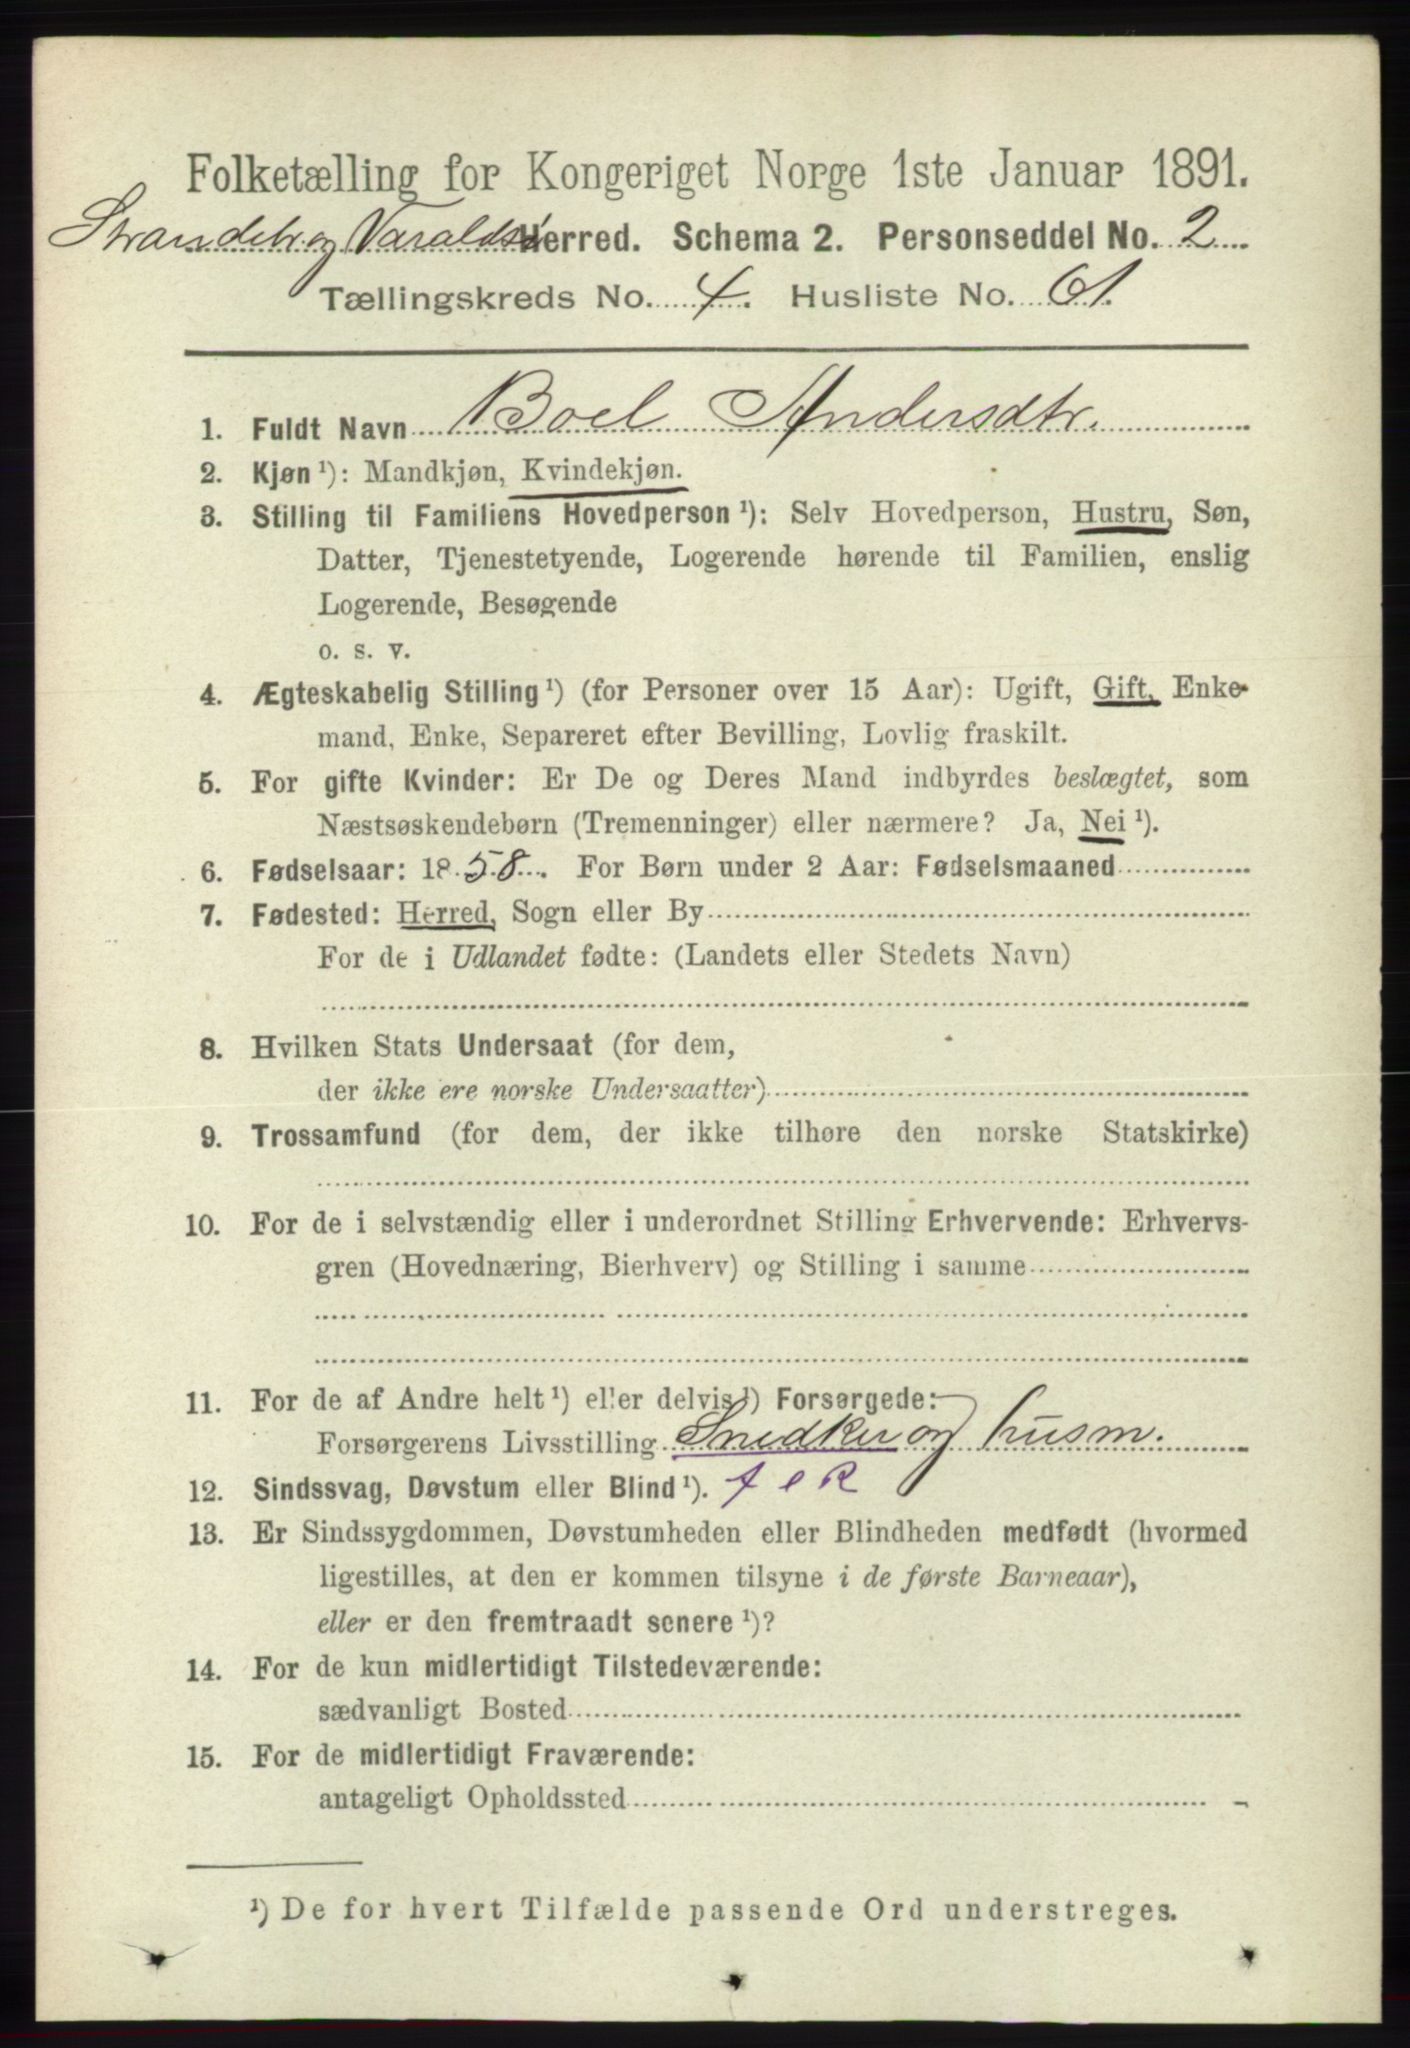 Folketælling for Kongeriget Norge 1ste Januar 1891.
Strandeb. og Varaldsø Herred. Schema 2. Personseddel No. 2
Tællingskreds No. 4. Husliste No. 61.
1. Fuldt Navn Boel Andersdtr.
2. Kjøn ¹): Mandkjøn, Kvindekjøn.
3. Stilling til Familiens Hovedperson ¹): Selv Hovedperson, Hustru, Søn,
Datter, Tjenestetyende, Logerende hørende til Familien, enslig
Logerende, Besøgende
o. s. v.
4. Ægteskabelig Stilling ¹) (for Personer over 15 Aar): Ugift, Gift, Enke-
mand, Enke, Separeret efter Bevilling, Lovlig fraskilt.
5. For gifte Kvinder: Er De og Deres Mand indbyrdes beslægtet, som
Næstsøskendebørn (Tremenninger) eller nærmere? Ja, Nei ¹).
6. Fødselsaar: 1858. For Børn under 2 Aar: Fødselsmaaned
7. Fødested: Herred, Sogn eller By
For de i Udlandet fødte: (Landets eller Stedets Navn)
8. Hvilken Stats Undersaat (for dem,
der ikke ere norske Undersaatter)
9. Trossamfund (for dem, der ikke tilhøre den norske Statskirke)
10. For de i selvstændig eller i underordnet Stilling Erhvervende: Erhvervs-
gren (Hovednæring, Bierhverv) og Stilling i samme
11. For de af Andre helt ¹) eller delvis ¹) Forsørgede:
Forsørgerens Livsstilling Snedker og husm.
12. Sindssvag, Døvstum eller Blind ¹).
13. Er Sindssygdommen, Døvstumheden eller Blindheden medfødt (hvormed
ligestilles, at den er kommen tilsyne i de første Barneaar),
eller er den fremtraadt senere ¹)?
14. For de kun midlertidigt Tilstedeværende:
sædvanligt Bosted
15. For de midlertidigt Fraværende:
antageligt Opholdssted
¹) De for hvert Tilfælde passende Ord understreges.